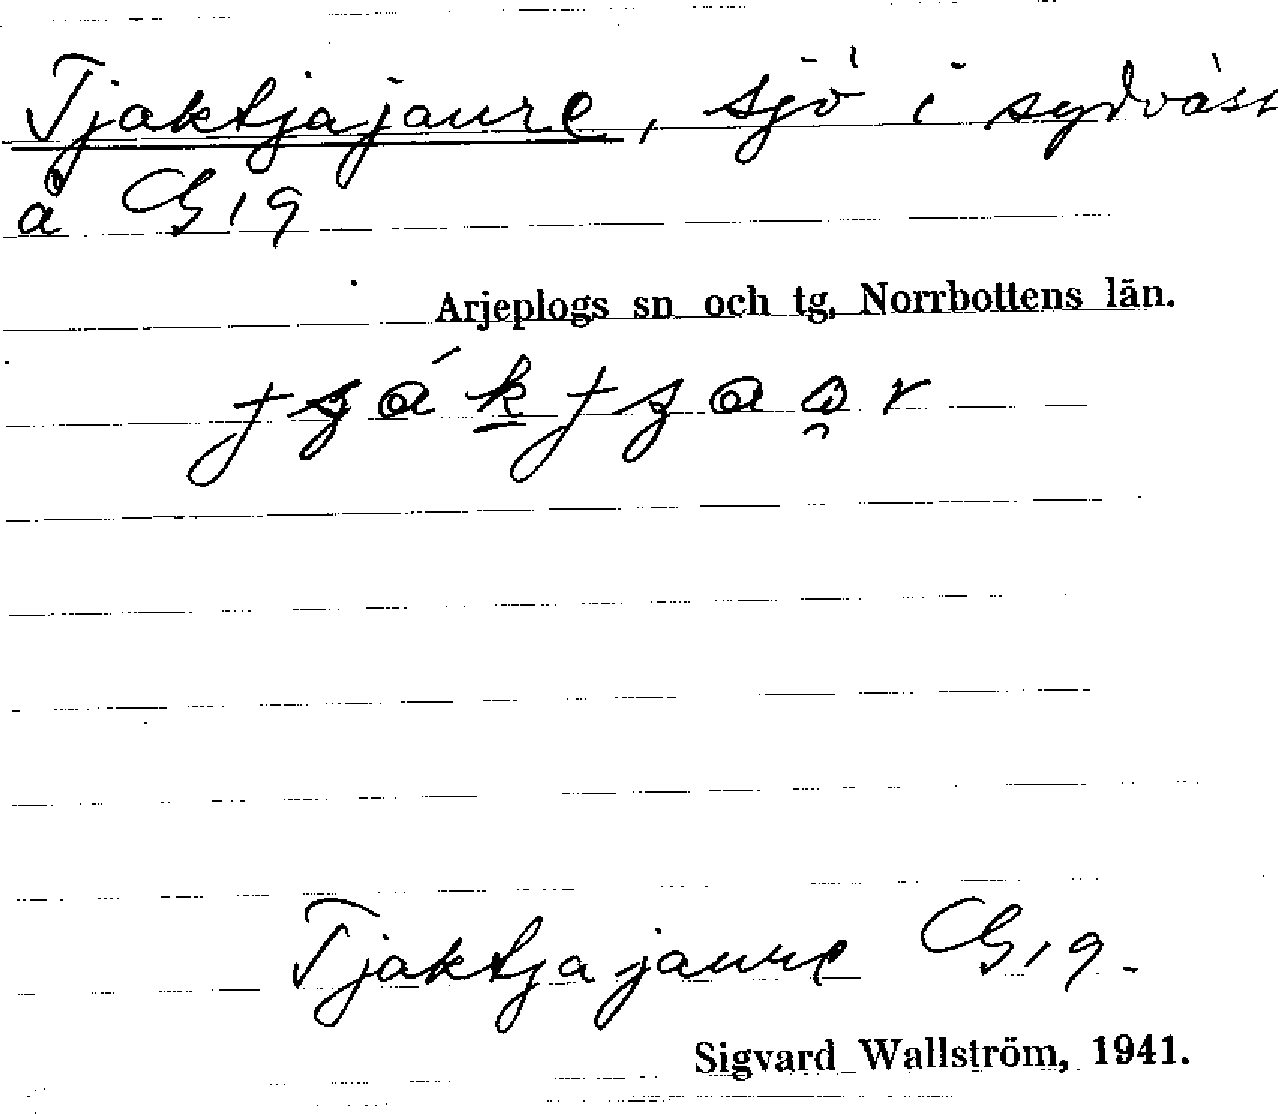 Tjaktjajaure, sjö i sydväst
å G 19
Arjeplogs sn och tg, Norrbottens län.
Tjaktjajaure G 19.
Sigvard Wallström, 1941.